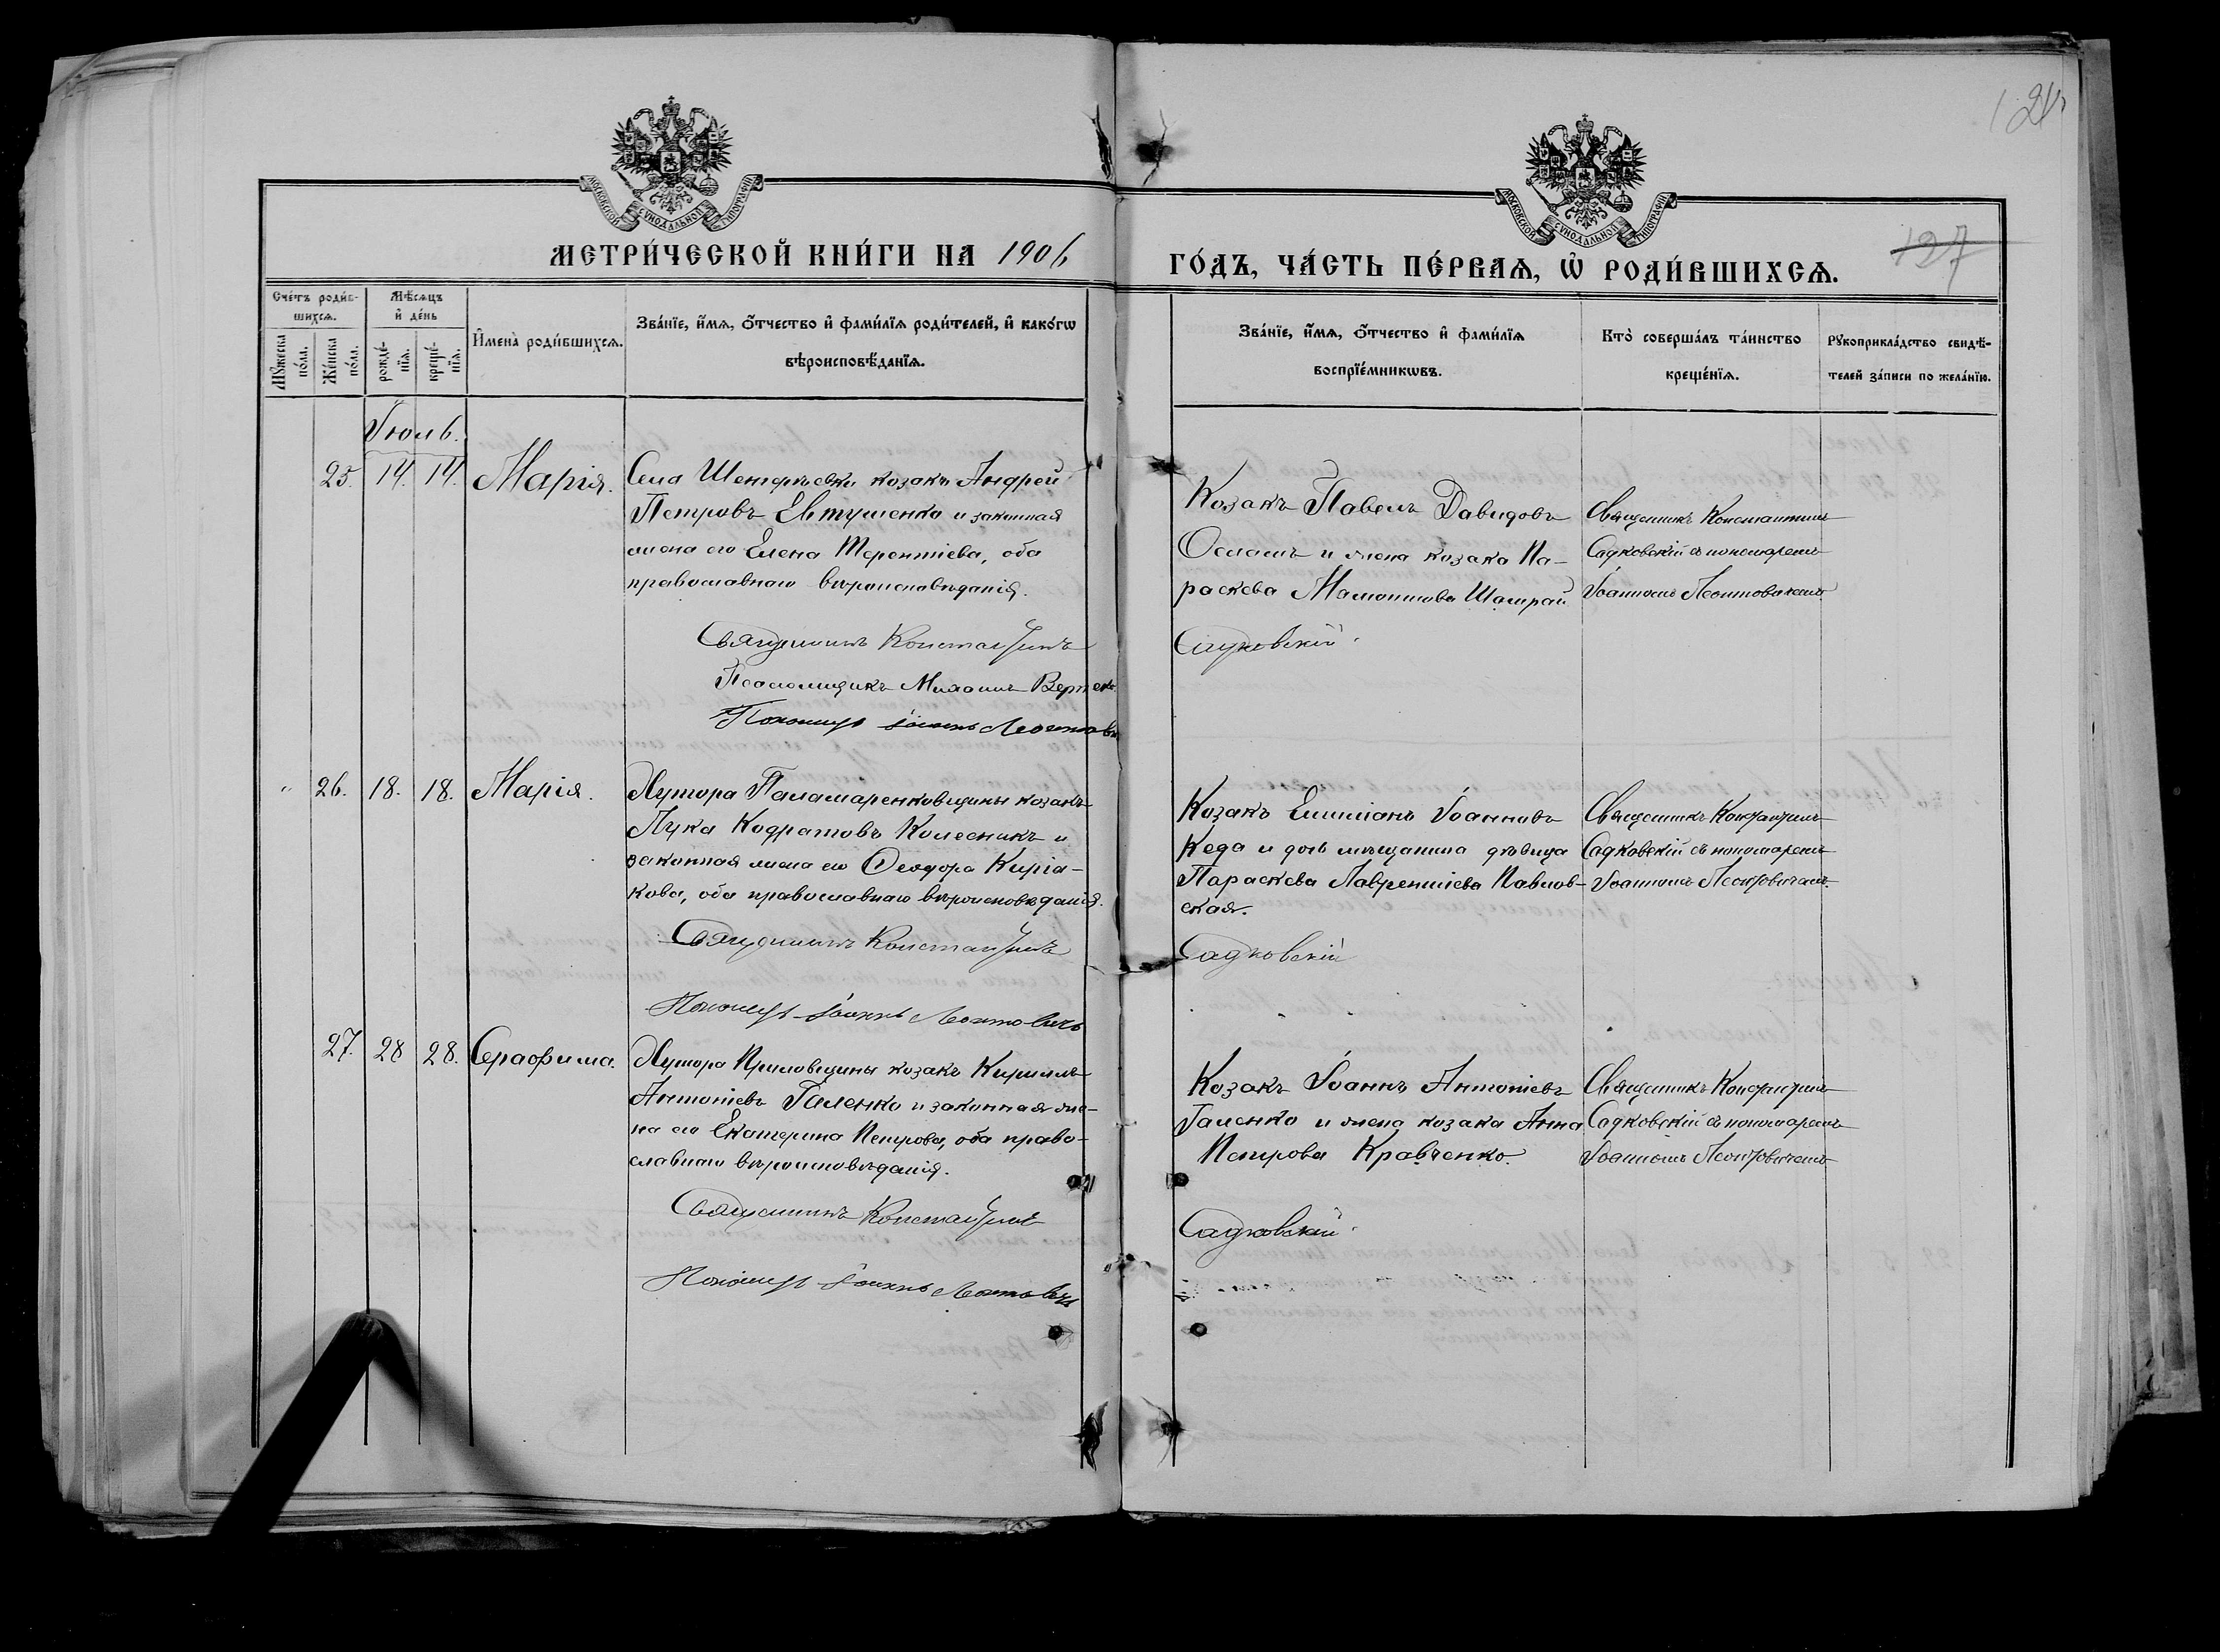 124
МОСКОВСКОЙ СУНОДАЛЬНОЙ ТИПОГРАФІИ
МОСКОВСКОЙ СУНОДАЛЬНОЙ ТИПОГРАФІИ
МЕТРИ́ЧЕСКОЙ КНИ́ГИ НА 1906
ГО́ДЪ, ЧА́СТЬ ПЕ́РВАѦ, Ѡ҆ РОДИ́ВШИХСѦ.
127
Сче́тъ роди́в-
шихсѧ.
Мꙋ́жеска по́ла.
Же́нска по́ла.
Мѣ́сѧцъ
и҆ де́нь
рожде́-
нїѧ.
креще́-
нїѧ.
И҆мена̀ роди́вшихсѧ.
Зва́нїе, и҆́мѧ, ѻ҆́тчество и҆ фами́лїѧ роди́телей, и҆ како́гѡ
вѣроисповѣ́данїѧ.
Зва́нїе, и҆́мѧ, ѻ҆́тчество и҆ фами́лїѧ
воспрїе́мникѡвъ.
Кто̀ соверша́лъ та́инство
креще́нїѧ.
Рꙋкоприкла́дство свидѣ́-
телей за́писи по жела́нїю.
Іюль.
25. 14. 14. Марія.
Села козакъ Андрей
Петровъ Евтушенко и законная
жена его Елена Терентіева, оба
православнаго вѣроисповѣданія.
Священникъ Константинъ
Псаломщикъ Михаилъ
Пономарь Іоаннъ Леонтовичъ
Козакъ Павелъ Давидовъ
и жена козака Па-
раскева Мамонтова Шатрай
Садковскій
Священникъ Константинъ
Садковскій съ пономаремъ
Іоанномъ Леонтовичемъ.
" 26. 18. 18. Марія.
Хутора Паламаренковщины козакъ
Лука Кодратовъ Колесникъ и
законная жена его Ѳеодора Киріа-
кова, оба православнаго вѣроисповѣданія.
Священникъ Константинъ
Пономарь Іоаннъ Леонтовичъ
Козакъ Емиліанъ Іоанновъ
Кеда и дочь мѣщанина дѣвица
Параскева Лаврентіева Павлов-
ская.
Садковскій
Священникъ Константинъ
Садковскій съ пономаремъ
Іоанномъ Леонтовичемъ.
27. 28 28. Серафима.
Хутора козакъ Кириллъ
Антоніевъ Галенко и законная же-
на его Екатерина Петрова, оба право-
славнаго вѣроисповѣданія.
Священникъ Константинъ
Пономарь Іоаннъ Леонтовичъ
Козакъ Іоаннъ Антоніевъ
Галенко и жена козака Анна
Петрова Кравченко.
Садковскій
Священникъ Константинъ
Садковскій съ пономаремъ
Іоанномъ Леонтовичемъ